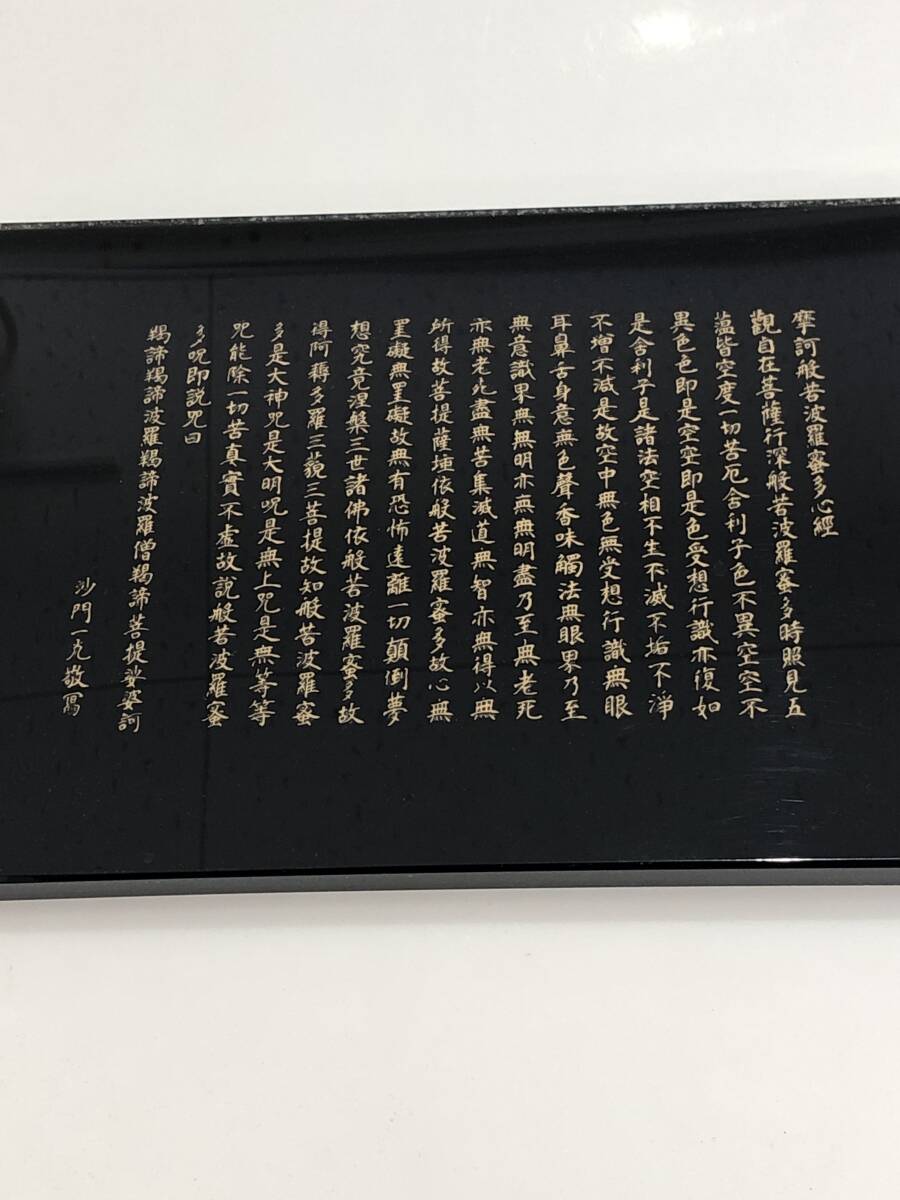 摩訶般若波羅蜜多心經
觀自在菩薩行深般若波羅蜜多時照見五
蘊皆空度一切苦厄舍利子色不異空空不
異色色即是空空即是色受想行識亦復如
是舍利子是諸法空相不生不滅不垢不淨
不增不減是故空中無色無受想行識無眼
耳鼻舌身意無色聲香味觸法無眼界乃至
無意識界無無明亦無無明盡乃至無老死
亦無老死盡無苦集滅道無智亦無得以無
所得故菩提薩埵依般若波羅蜜多故心無
罣礙無罣礙故無有恐怖遠離一切顛倒夢
想究竟涅槃三世諸佛依般若波羅蜜多故
得阿耨多羅三藐三菩提故知般若波羅蜜
多是大神咒是大明咒是無上咒是無等等
咒能除一切苦真實不虛故說般若波羅蜜
多咒即說咒曰
羯諦羯諦波羅羯諦波羅僧羯諦菩提娑婆訶
沙門一九敬寫